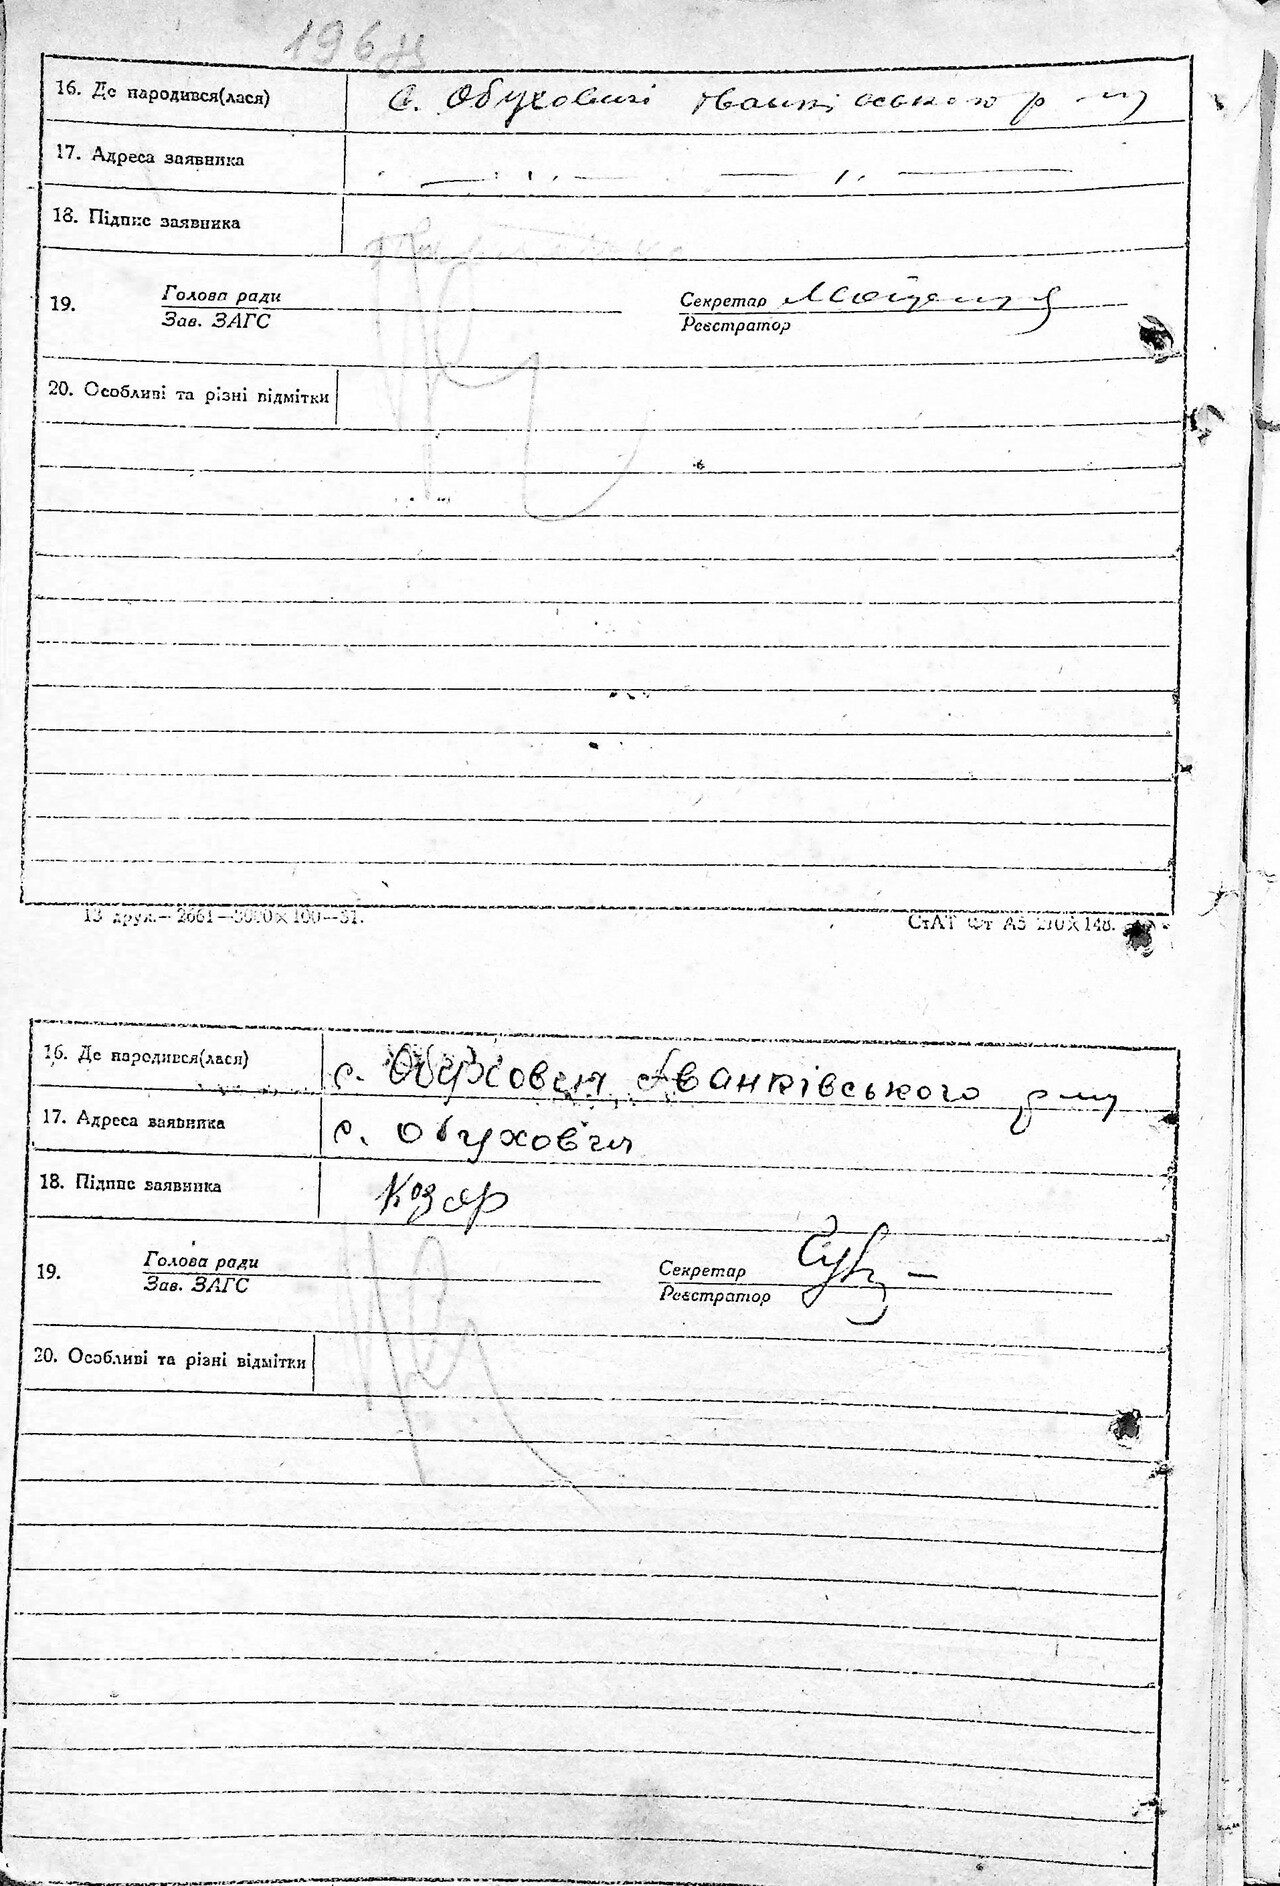 196
16. Де народився(лася) с. Обуховичі Іванківського р-ну
17. Адреса заявника — " — — " —
18. Підпис заявника
19. Голова ради Секретар
Зав. ЗАГС Реєстратор
20. Особливі та різні відмітки
13 друк.—2661—5000×100—51. СтАТ Фт А5 210×148.
16. Де народився(лася) с. Обуховичі Іванківського р-ну
17. Адреса заявника с. Обуховичі
18. Підпис заявника Козар
19. Голова ради Секретар
Зав. ЗАГС Реєстратор
20. Особливі та різні відмітки